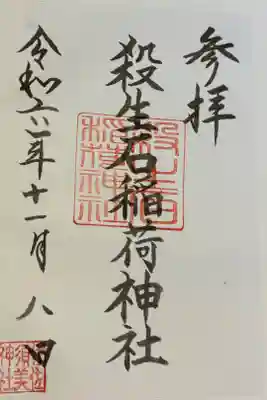 参拝
殺生石稲荷神社
殺生石稲積神社
令和六年十一月八日
須佐美神社